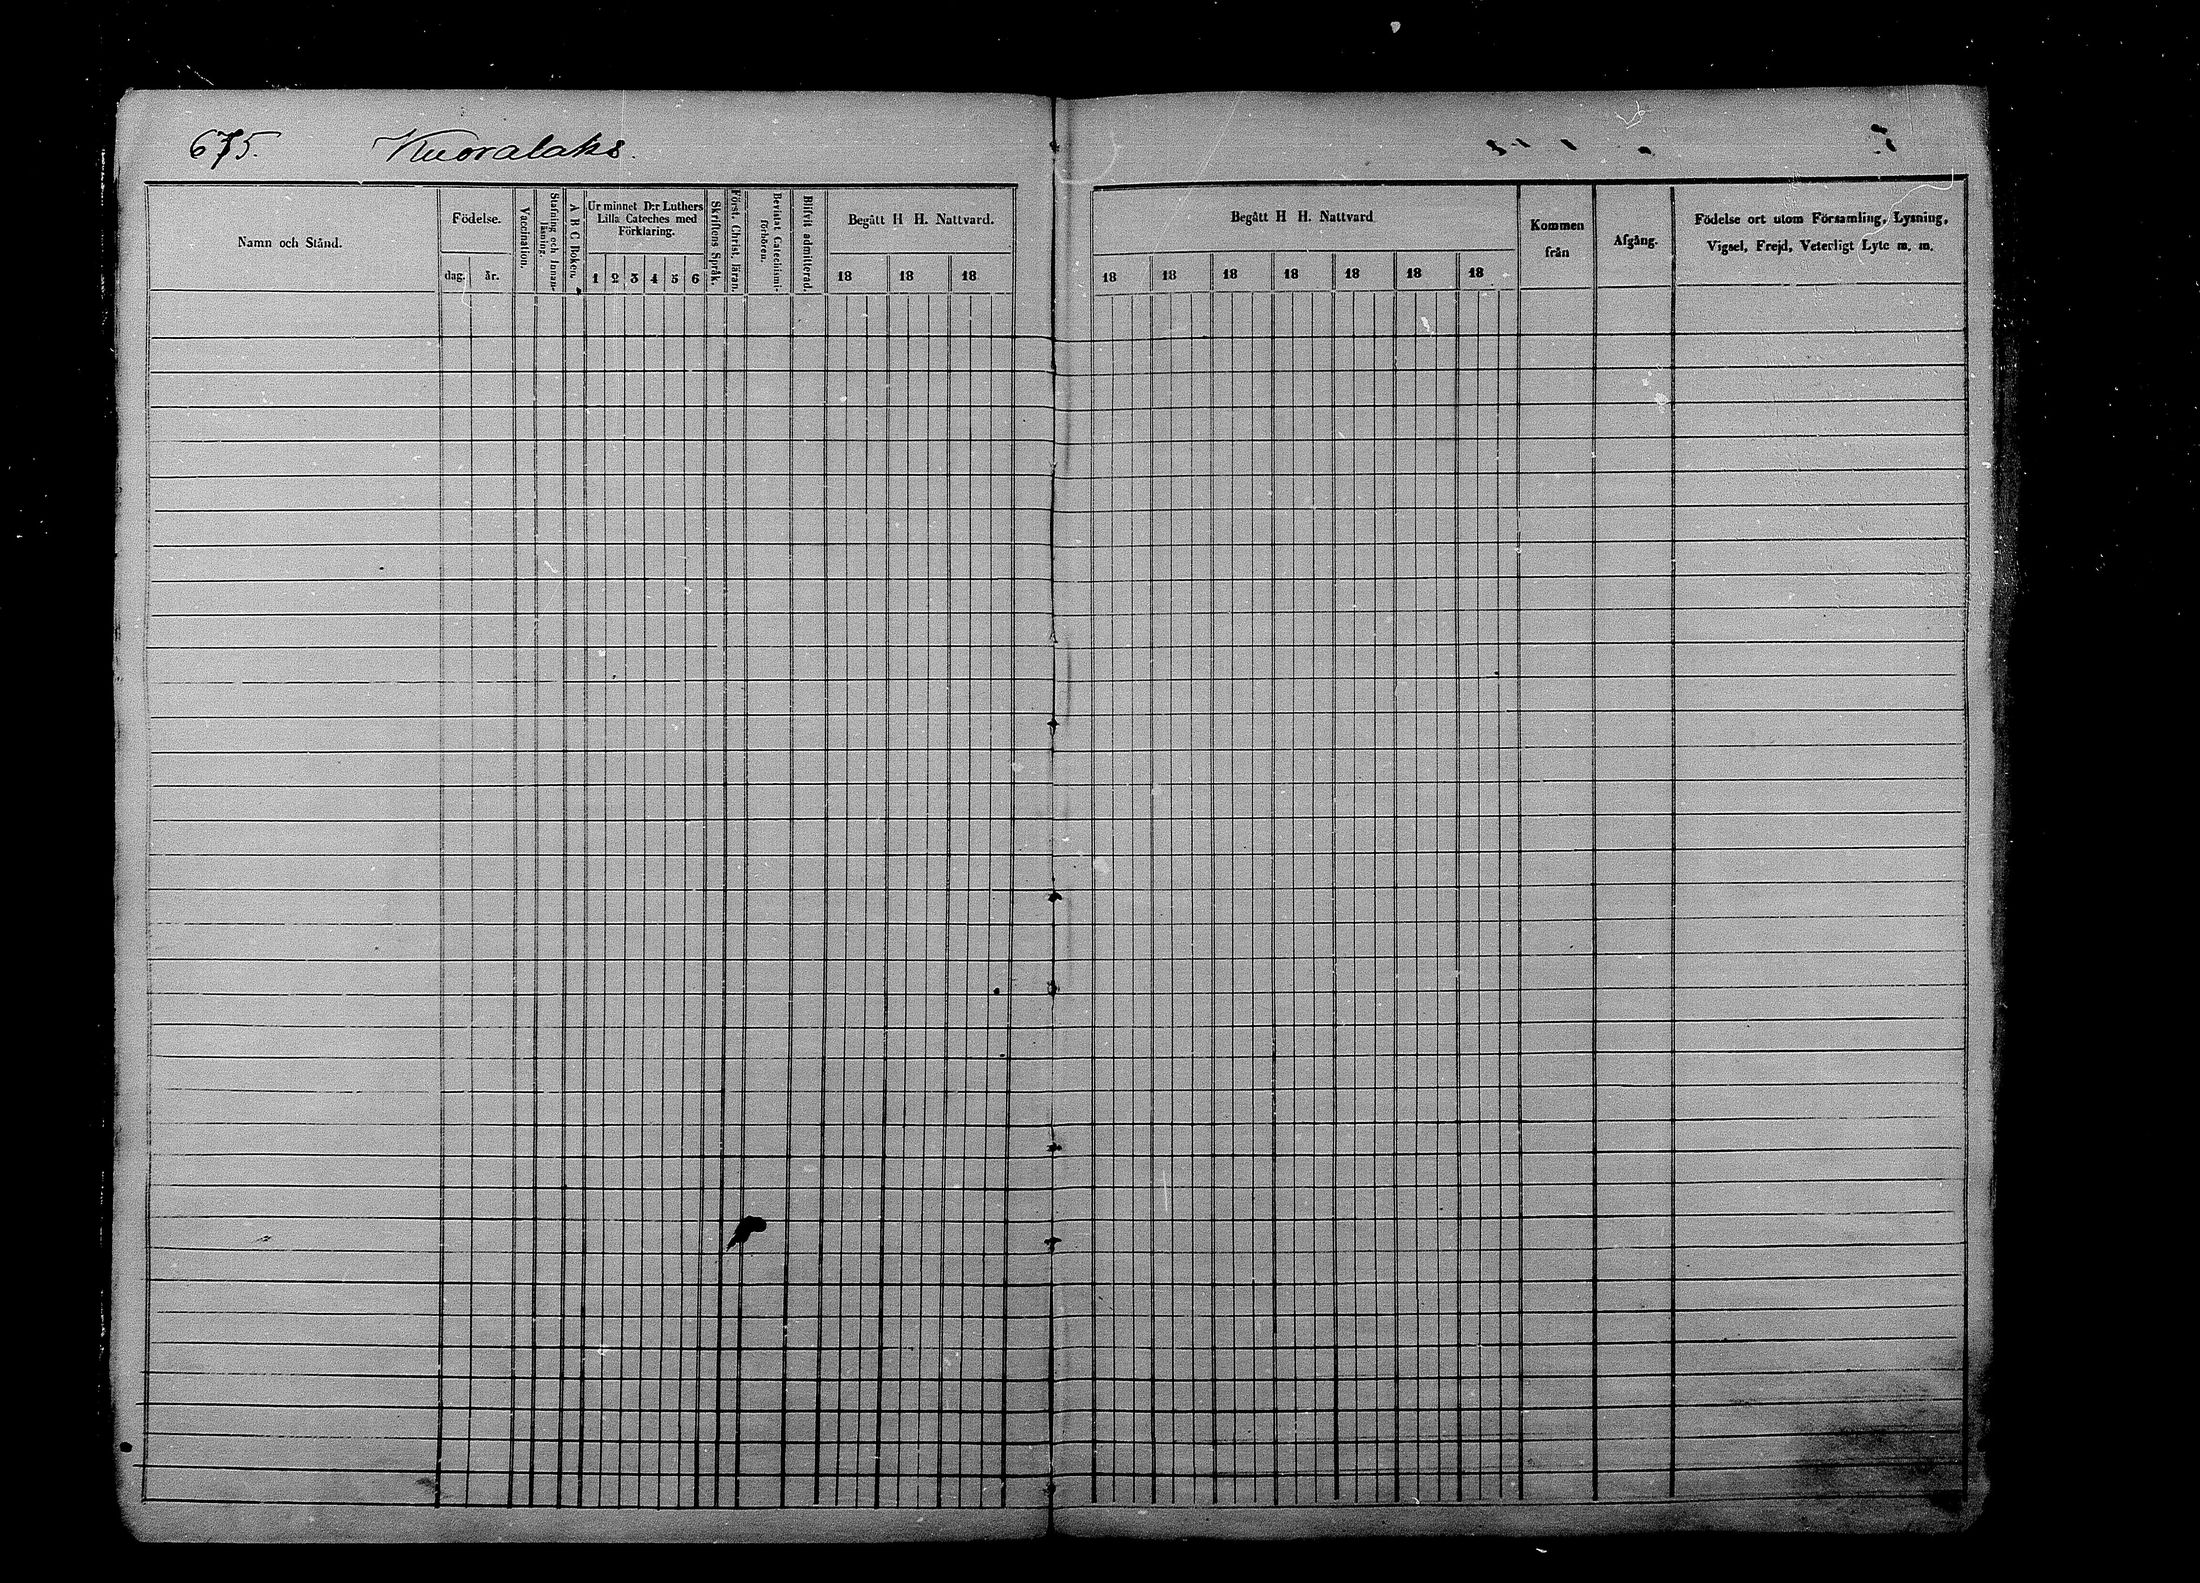 675. Kuoralaks.
Namn och Stånd.
Födelse.
dag. år.
Vaccination.
Stafning och Innan-
läsning.
A B C Boken.
Ur minnet D:r Luthers
Lilla Cateches med
Förklaring.
1 2 3 4 5 6
Skriftens Språk.
Först. Christ. läran.
Bevistat Catechismi-
förhören.
Blifvit admitterad.
Begått H H. Nattvard.
18 18 18
Begått H H. Nattvard
18 18 18 18 18 18 18
Kommen
från
Afgång.
Födelse ort utom Församling, Lysning,
Vigsel, Frejd, Veterligt Lyte m. m.